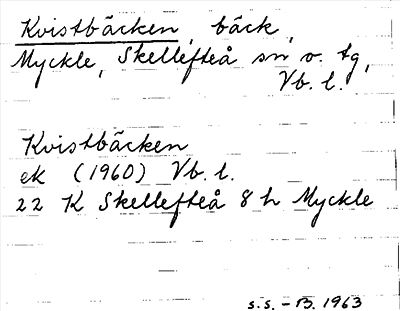 Kvistbäcken, bäck,
Myckle, Skellefteå sn o. tg,
Vb. l.
Kvistbäcken
ek (1960) Vb. l.
22 K Skellefteå 8 h Myckle
s.s. – B. 1963